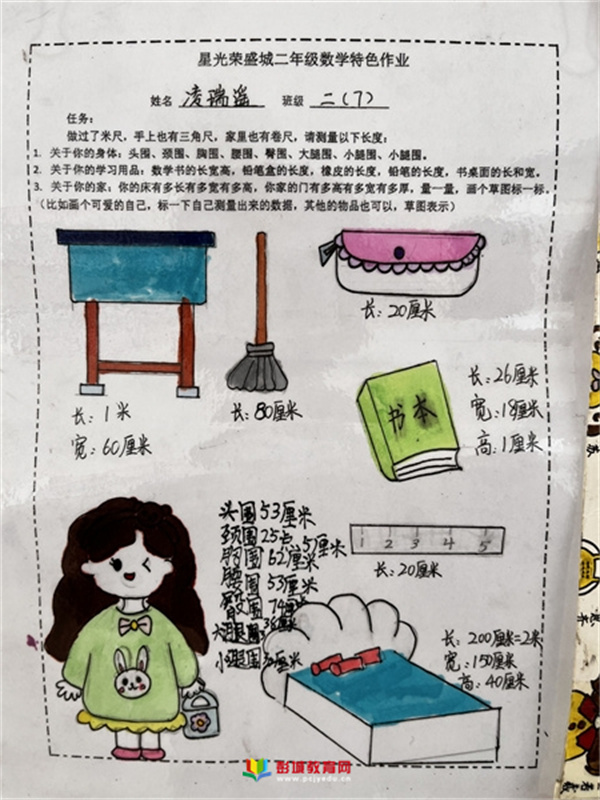 星光荣盛城二年级数学特色作业
姓名 凌瑞遥 班级 二(7)
任务：
做过了米尺，手上也有三角尺，家里也有卷尺，请测量以下长度：
1. 关于你的身体：头围、颈围、胸围、腰围、臀围、大腿围、小腿围、小腿围。
2. 关于你的学习用品：数学书的长宽高，铅笔盒的长度，橡皮的长度，铅笔的长度，书桌面的长和宽。
3. 关于你的家：你的床有多长有多宽有多高，你家的门有多高有多宽有多厚，量一量，画个草图标一标。
（比如画个可爱的自己，标一下自己测量出来的数据，其他的物品也可以，草图表示）
长：20厘米
长：1米
宽：60厘米
长：80厘米
书本
长：26厘米
宽：18厘米
高：1厘米
头围53厘米
颈围25点5厘米
胸围62厘米
腰围53厘米
臀围74厘米
大腿围38厘米
小腿围 厘米
1 2 3 4 5
长：20厘米
长：200厘米=2米
宽：150厘米
高：40厘米
彭城教育网
www.pcjyedu.cn